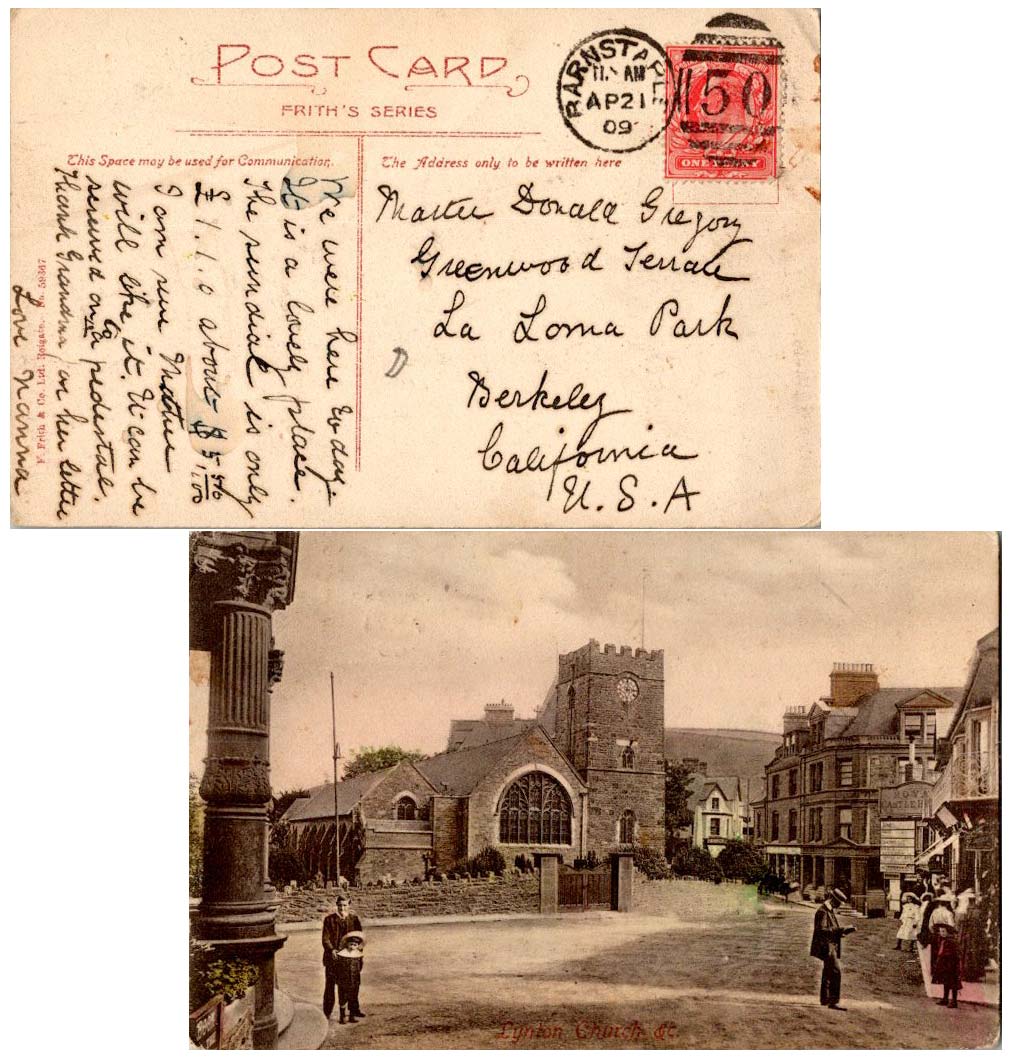 POST CARD
FRITH'S SERIES
BARNSTAPLE
11. AM
AP21
09
150
ONE
This Space may be used for Communication.
The Address only to be written here
We were here today
It is a lovely place.
The sundial is only
£1.1.0 about $5
I am sure
will like it. It can be
screwed on a pedestal.
Thank Grandma for her letter
Love Nanna
F. Frith & Co. Ltd. Reigate. No. 59367
Master Donald Gregory
Greenwood Terrace
La Loma Park
Berkeley
California
U.S.A
D
CASTLE
Lynton Church &c.